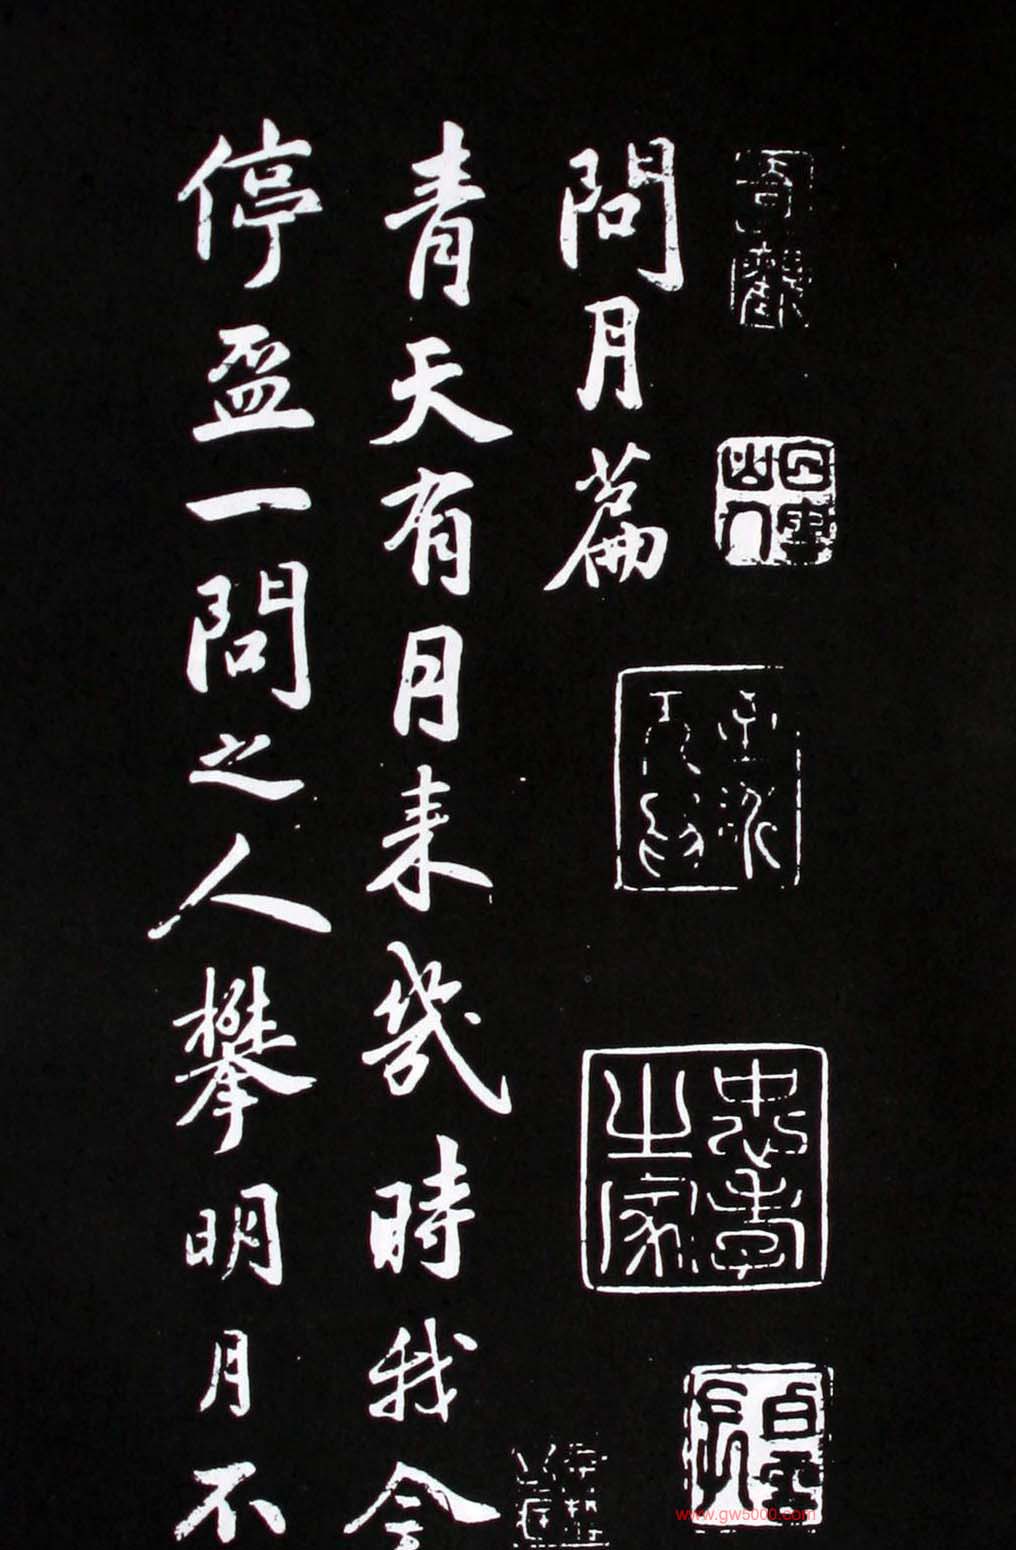 問月篇
青天有月来幾時我今
停盃一問之人攀明月不
忠孝之家
www.gw5000.com